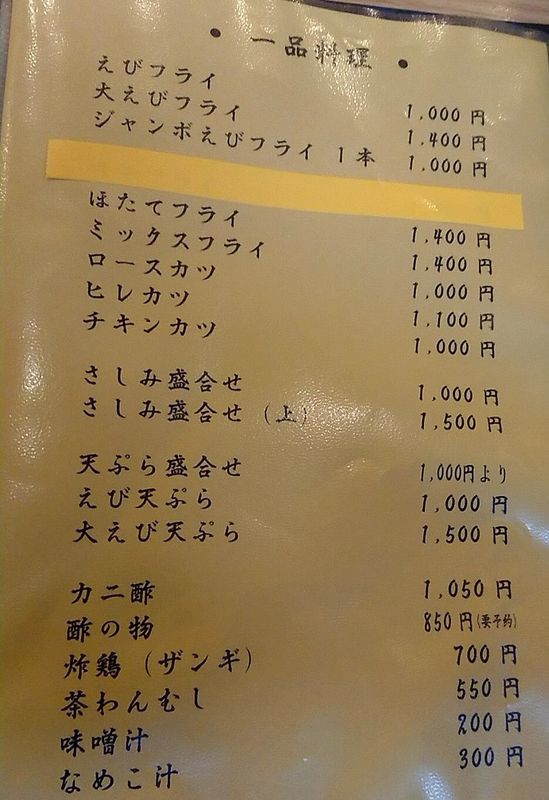 ・ 一品料理 ・
えびフライ 1,000円
大えびフライ 1,400円
ジャンボえびフライ 1本 1,000円
ほたてフライ 1,400円
ミックスフライ 1,400円
ロースカツ 1,000円
ヒレカツ 1,100円
チキンカツ 1,000円
さしみ盛合せ 1,000円
さしみ盛合せ（上） 1,500円
天ぷら盛合せ 1,000円より
えび天ぷら 1,000円
大えび天ぷら 1,500円
カニ酢 1,050円
酢の物 850円(要予約)
炸鶏（ザンギ） 700円
茶わんむし 550円
味噌汁 200円
なめこ汁 300円